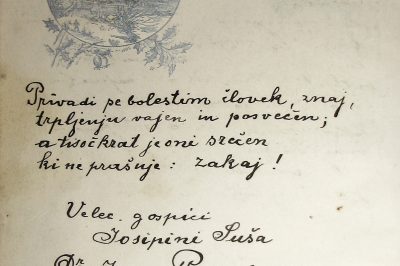 Privadi pe bolestim človek, znaj,
trpljenju vajen in posvečen;
a tisočkrat je oni srečen
ki ne prašuje: zakaj!
Velec. gospici
Josipini Suša
Dr.